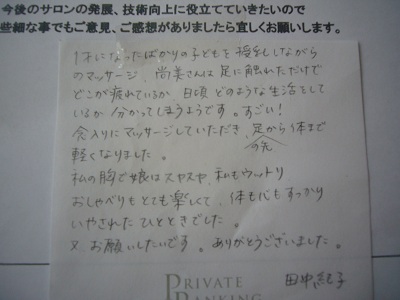 今後のサロンの発展、技術向上に役立てていきたいので
些細な事でもご意見、ご感想がありましたら宜しくお願いします。
1才になったばかりの子どもを 授乳しながら
のマッサージ、尚美さんは 足に触れただけで
どこが疲れているか、日頃 どのような生活をして
いるか 分かってしまうようです。すごい!
念入りに マッサージしていただき、足から体まで
の先
軽くなりました。
私の胸で娘はスヤスヤ、私もウットリ
おしゃべりも とても楽しくて、体も心も すっかり
いやされた ひとときでした。
又、お願いしたいです。ありがとうございました。
PRIVATE
BANKING
田中紀子